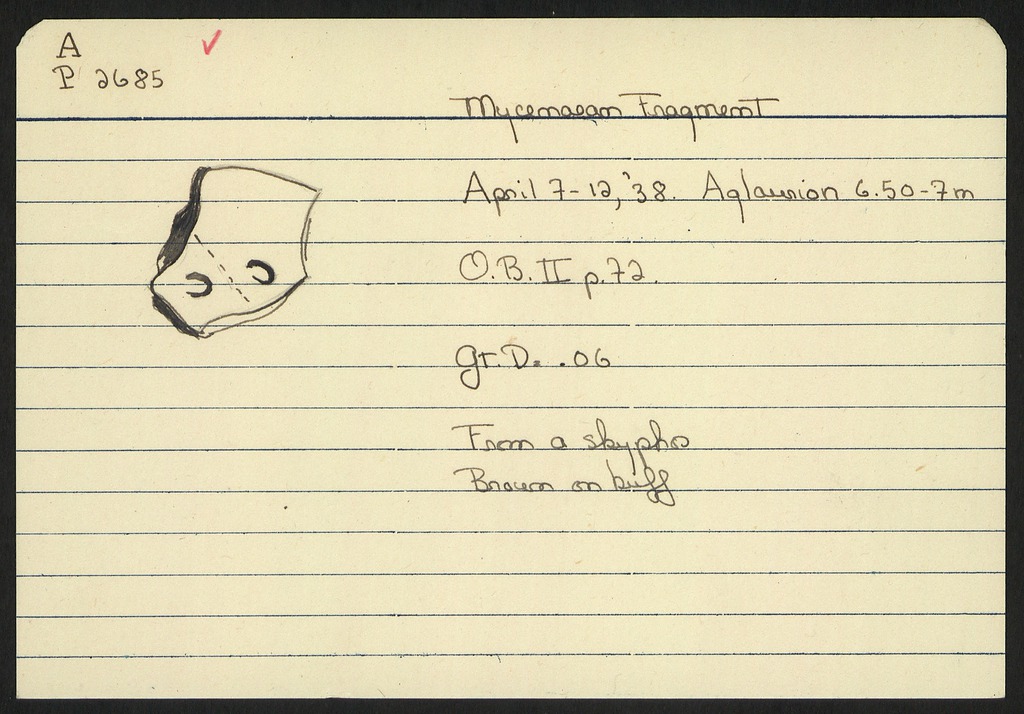 A
P 2685
Mycenaean Fragment
April 7-12, '38. Aglaurion 6.50-7m
O.B. II p.72.
Gr. D. .06
From a skyphos
Brown on buff